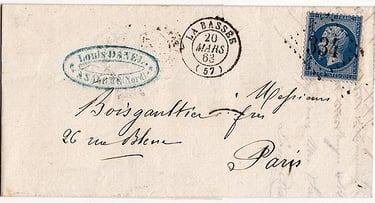 Louis DANEL
(Nord)
LA BASSÉE
20
MARS
63
(57)
Messieurs
Boisgaultier fres
26 rue Bleue
Paris